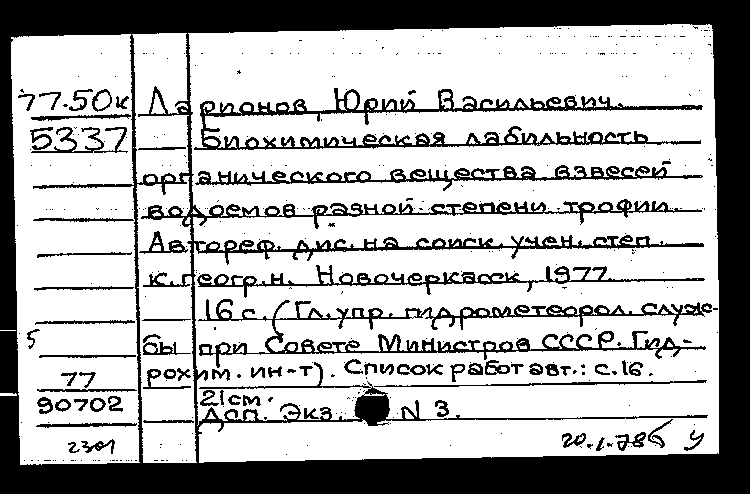 77-50к Ларионов, Юрий Васильевич.
5337 Биохимическая лабильность
органического вещества взвесей
водоемов разной степени трофии.
Автореф. дис. на соиск. учен. степ.
к. геогр. н. Новочеркасск, 1977
16 с. (Гл. упр. гидрометеорол. служ-
5
бы при Совете Министров СССР. Гид-
77 рохим. ин-т). Список работ авт.: с. 16.
21 см.
90702 Доп. Экз. N 3.
2301 20.1.78б у